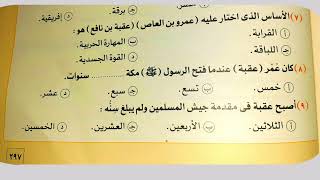 ج. برقة. د. إفريقية.
(٧) الأساس الذى اختار عليه (عمرو بن العاص) (عقبة بن نافع) هو:
أ. القرابة. ب. المهارة الحربية.
ج. اللباقة. د. القوة الجسدية.
(٨) كان عُمْر (عقبة) عندما فتح الرسول (ﷺ) مكة .......... سنوات.
أ. خمس. ب. تسع. ج. سبع. د. عشر.
(٩) أصبح عقبة فى مقدمة جيش المسلمين ولم يبلغ سِنُّه:
أ. الثلاثين. ب. الأربعين. ج. العشرين. د. الخمسين.
٢٩٧